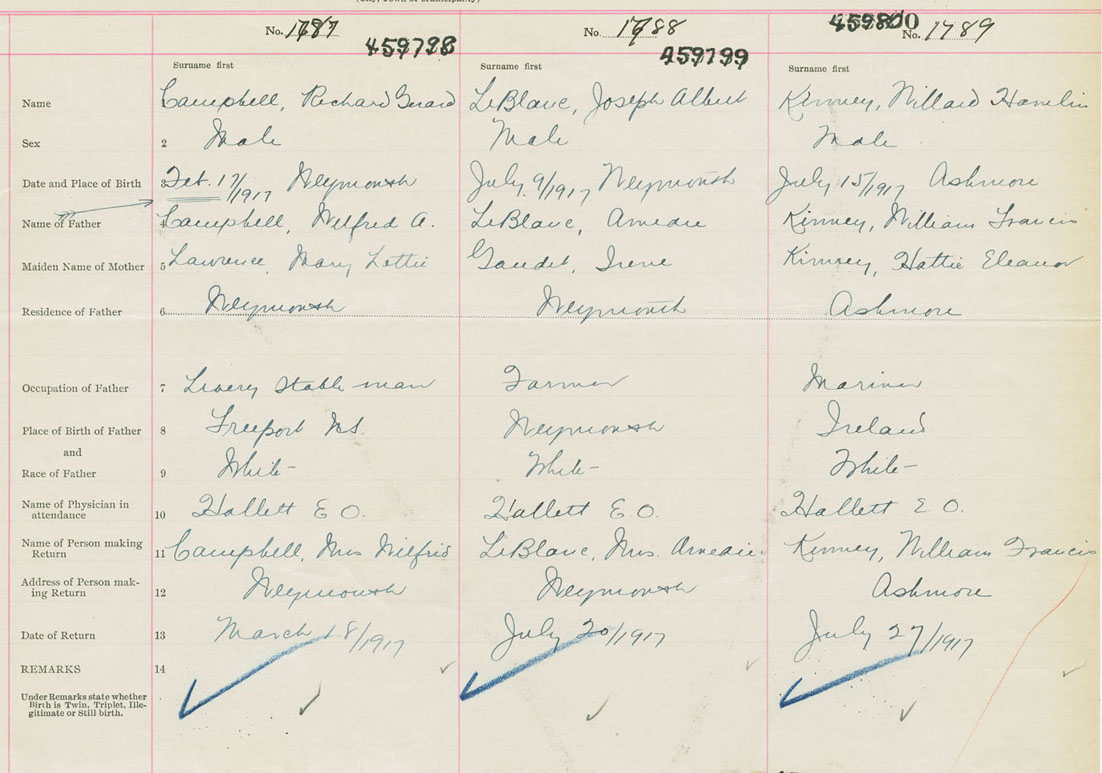 No. 1787 No. 1788 No. 1789
459798 459799 459800
Surname first Surname first Surname first
Name Campbell, Richard Gerard LeBlanc, Joseph Albert Kinney, Willard Hamlin
Sex 2 Male Male Male
Date and Place of Birth 3 Feb. 17/1917 Weymouth July 9/1917 Weymouth July 15/1917 Ashmore
Name of Father 4 Campbell, Wilfred A. LeBlanc, Amedie Kinney, William Francis
Maiden Name of Mother 5 Lawrence, Mary Lettie Gaudet, Irene Kinney, Hattie Eleanor
Residence of Father 6 Weymouth Weymouth Ashmore
Occupation of Father 7 Livery Stable-man Farmer Mariner
Place of Birth of Father 8 Freeport N.S. Weymouth Ireland
and
Race of Father 9 White White White
Name of Physician in
attendance 10 Hallett E O. Hallett E. O. Hallett E O.
Name of Person making
Return 11 Campbell, Mrs Wilfrid LeBlanc, Mrs. Amedie Kinney, William Francis
Address of Person mak-
ing Return 12 Weymouth Weymouth Ashmore
Date of Return 13 March 18/1917 July 20/1917 July 27/1917
REMARKS 14
Under Remarks state whether
Birth is Twin, Triplet, Ille-
gitimate or Still birth.